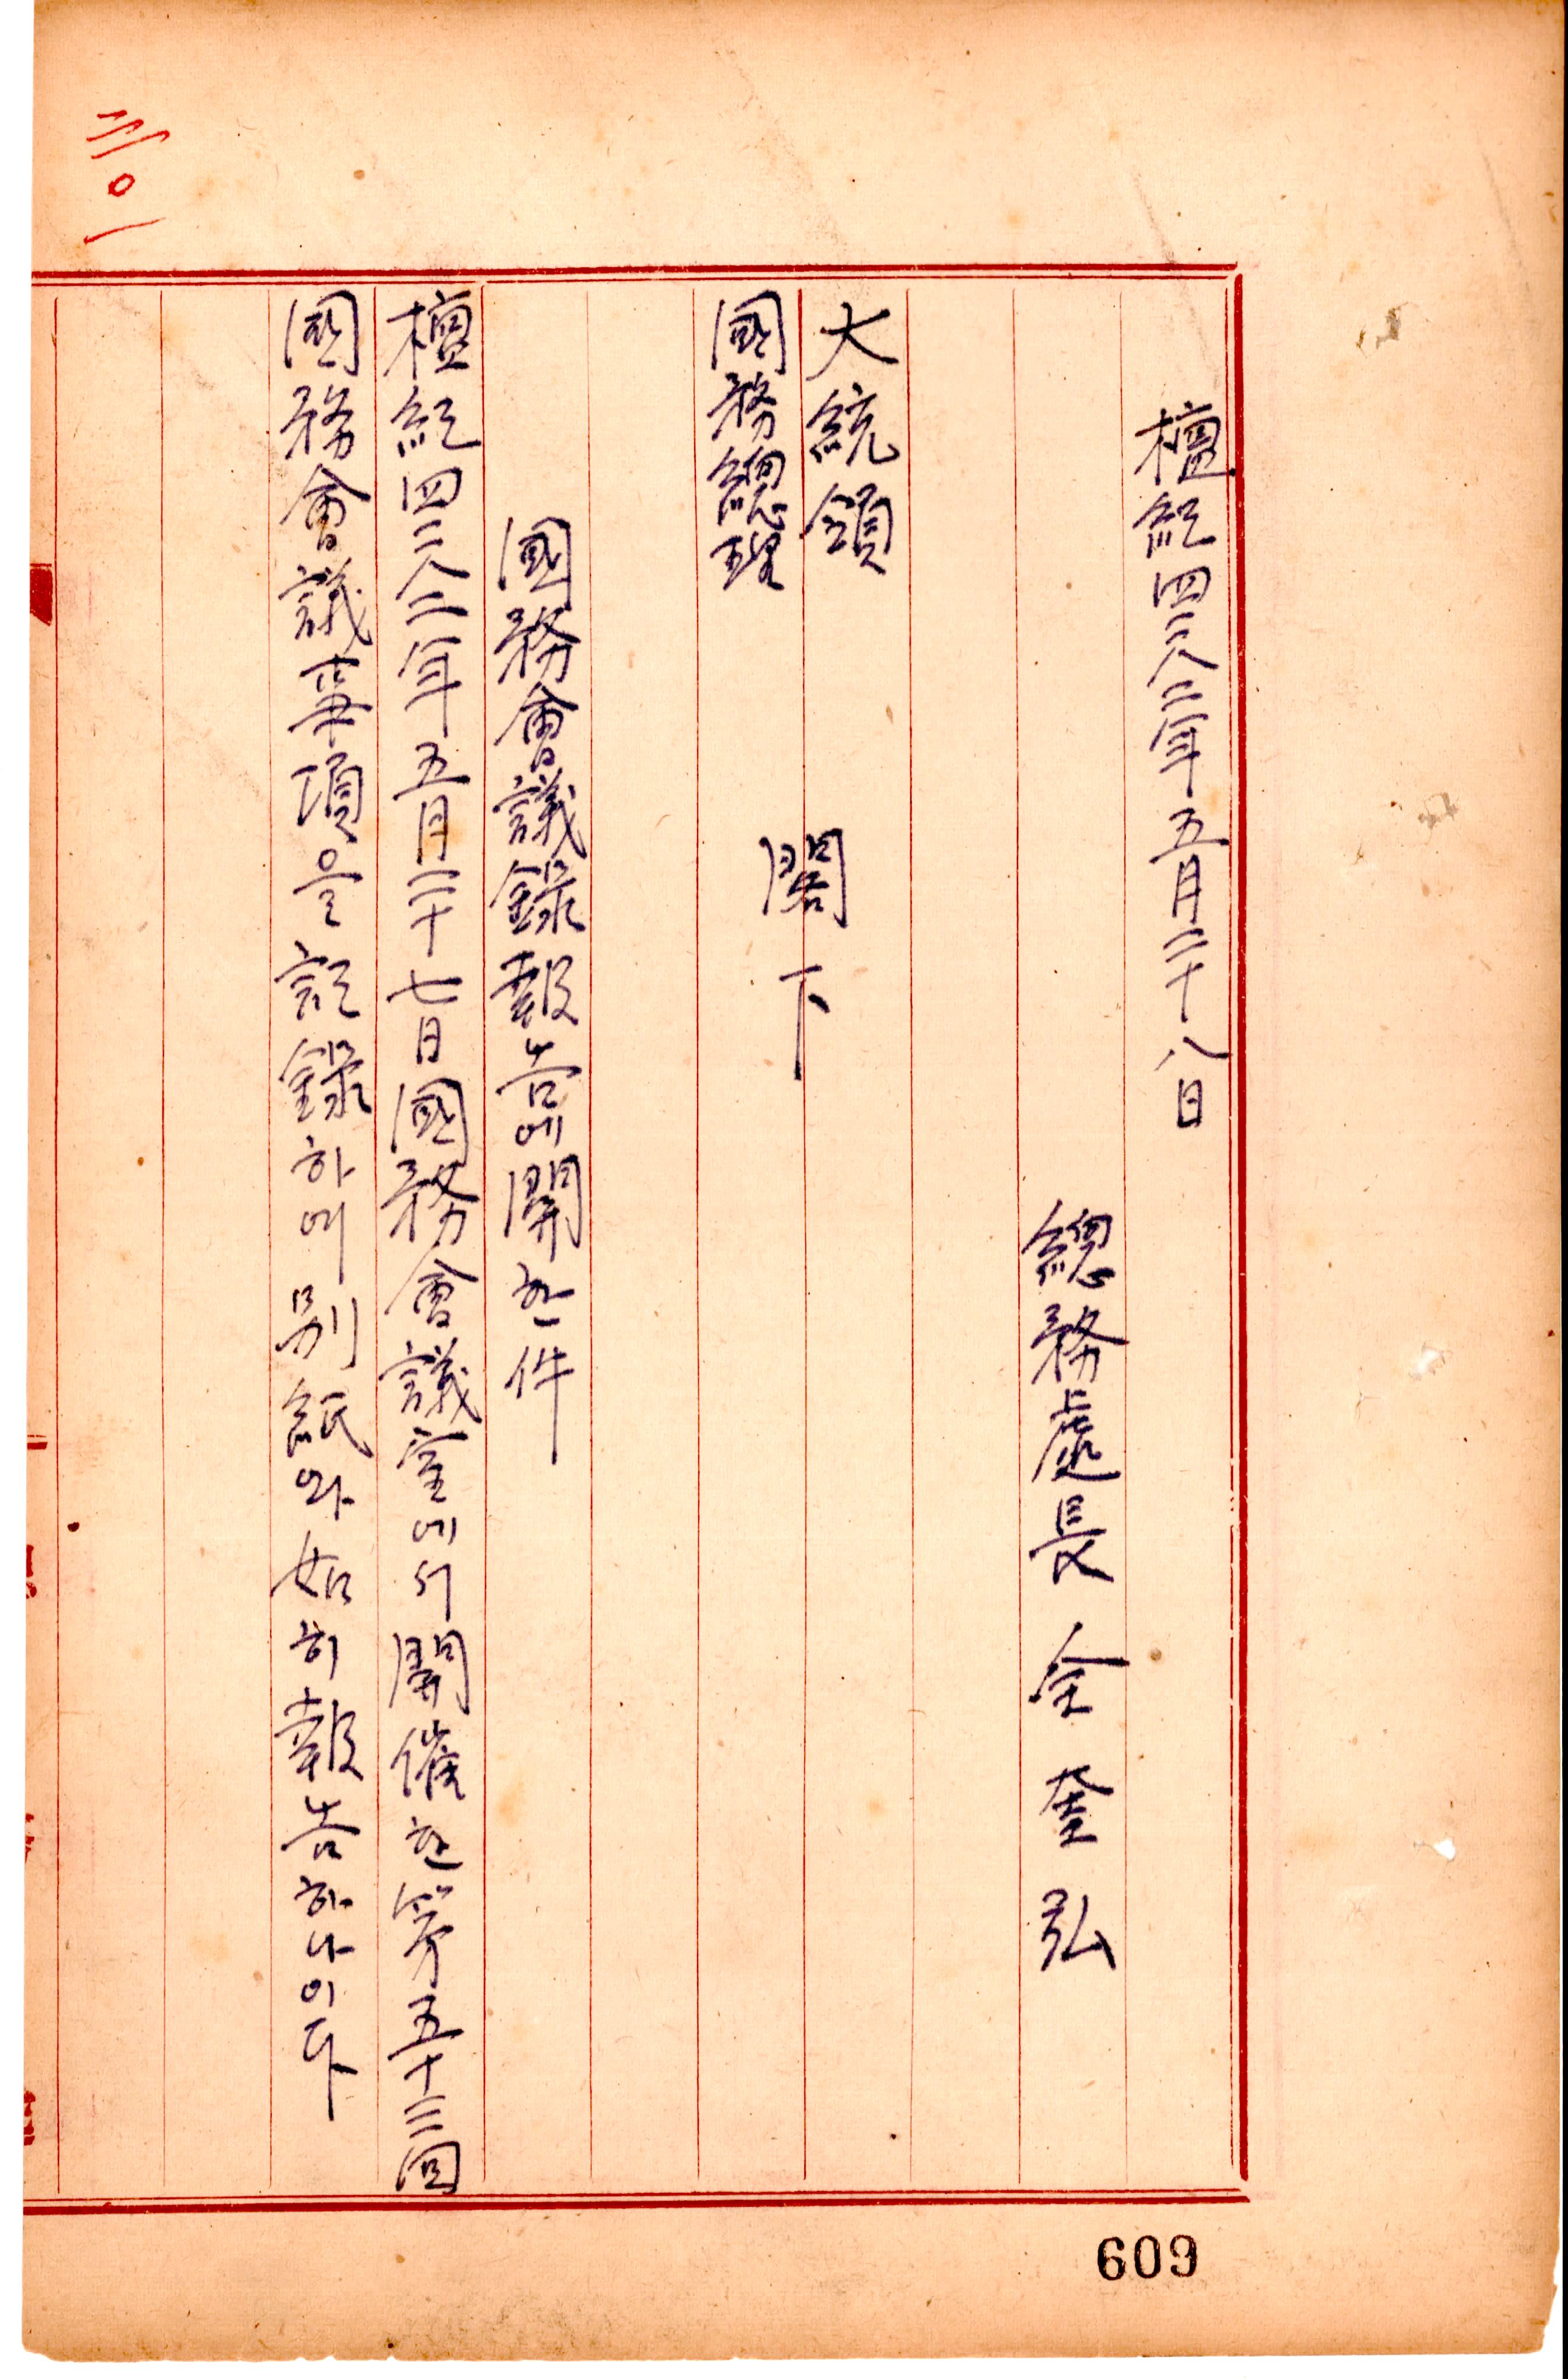 檀紀四二八二年五月二十八日
總務處長 全奎弘
大統領
國務總理
閣下
國務會議錄報告에關한件
檀紀四二八二年五月二十七日國務會議室에서開催한第五十三回
國務會議事項을記錄하여別紙와如히報告하나이다
609